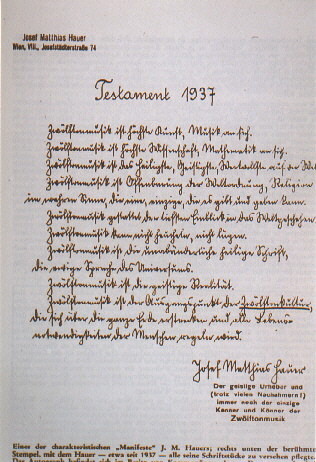 Josef Matthias Hauer
Wien, VIII., Josefstädterstraße 74
Testament 1937
Zwölftonmusik ist höchste Kunst, Musik an sich.
Zwölftonmusik ist höchste Wissenschaft, Mathematik an sich.
Zwölftonmusik ist das Heiligste, Geistigste, Wertvollste auf der Welt
Zwölftonmusik ist Offenbarung der Weltordnung, Religion
im wahren Sinne, die eine, einzige, die es gibt und geben kann.
Zwölftonmusik gestattet den tiefsten Einblick in das Weltgeschehen
Zwölftonmusik kann nicht heucheln, nicht lügen.
Zwölftonmusik ist die unabänderliche heilige Schrift,
die ewige Sprache des Universums.
Zwölftonmusik ist die geistige Realität.
Zwölftonmusik ist der Ausgangspunkt der Zwölftonkultur,
die sich über die ganze Erde erstrecken und alle Lebens-
notwendigkeiten der Menschen regeln wird.
Josef Matthias Hauer
Der geistige Urheber und
(trotz vielen Nachahmern!)
immer noch der einzige
Kenner und Könner der
Zwölftonmusik
Eines der charakteristischen „Manifeste" J. M. Hauers, rechts unten der berühmte
Stempel, mit dem Hauer — etwa seit 1937 — alle seine Schriftstücke zu versehen pflegte.